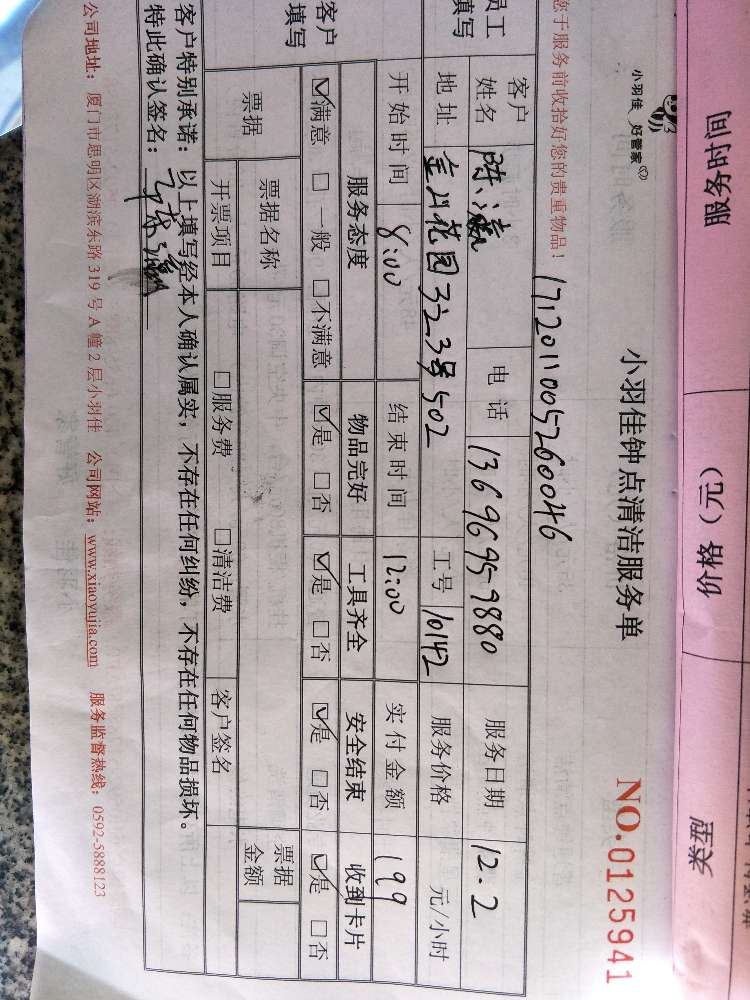 服务时间 价格（元） 类型
小羽佳 好管家
小羽佳钟点清洁服务单
NO.0125941
您于服务前收拾好您的贵重物品！
1712011005260046
员工填写
客户姓名 陈瀛 电话 13696959880 服务日期 12.2
地址 金尚花园323号502 工号 10142 服务价格 元/小时
开始时间 8:00 结束时间 12:00 实付金额 199
客户填写
服务态度 物品完好 工具齐全 安全结束 收到卡片
☑满意 □一般 □不满意 ☑是 □否 ☑是 □否 ☑是 □否 ☑是 □否
票据 票据名称 票据金额
开票项目 □服务费 □清洁费 客户签名
客户特别承诺：以上填写经本人确认属实，不存在任何纠纷，不存在任何物品损坏。
特此确认签名：
公司地址：厦门市思明区湖滨东路319号A幢2层小羽佳 公司网站：www.xiaoyujia.com 服务监督热线：0592-5888123